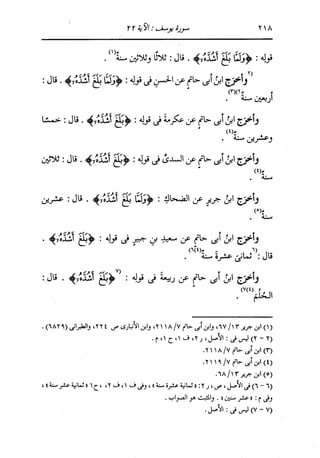 ٢١٨ سورة يوسف : الآية ٢٢
قوله : ﴿وَلَمَّا بَلَغَ أَشُدَّهُ﴾ . قال : ثلاثًا وثلاثين سنةً(١) .
(٢)وأخرَج ابنُ أبى حاتمٍ عن الحسنِ فى قولِه : ﴿وَلَمَّا بَلَغَ أَشُدَّهُ﴾ . قال :
أربعين سنةً(٢)(٣) .
وأخرَج ابنُ أبى حاتمٍ عن عكرمةَ فى قولِه : ﴿بَلَغَ أَشُدَّهُ﴾ . قال : خمسًا
وعشرين سنةً(٤) .
وأخرَج ابنُ أبى حاتمٍ عن السدىِّ فى قولِه : ﴿بَلَغَ أَشُدَّهُ﴾ . قال : ثلاثين
سنةً(٤) .
وأخرَج ابنُ جريرٍ عن الضحاكِ : ﴿وَلَمَّا بَلَغَ أَشُدَّهُ﴾ . قال : عشرين
سنةً(٥) .
وأخرَج ابنُ أبى حاتمٍ عن سعيدِ بنِ جبيرٍ فى قولِه : ﴿بَلَغَ أَشُدَّهُ﴾ .
قال : (٦)ثمانىَ عشرةَ سنةً(٦)(٤) .
وأخرَج ابنُ أبى حاتمٍ عن ربيعةَ فى قولِه : (٧)﴿بَلَغَ أَشُدَّهُ﴾ . قال :
الحُلُمَ(٤)(٧) .
(١) ابن جرير ١٣/ ٦٧، وابن أبى حاتم ٧/ ٢١١٨، وابن الأنبارى ص ٢٢٤، والطبرانى (٦٨٢٩) .
(٢ - ٢) ليس فى : الأصل، ر ٢، ف ١، ح ١، م .
(٣) ابن أبى حاتم ٧/ ٢١١٨.
(٤) ابن أبى حاتم ٧/ ٢١١٩.
(٥) ابن جرير ١٣/ ٦٨.
(٦ - ٦) فى الأصل، ص، ر ٢: «ثمانية عشرة سنة»، وفى ف ١، ف ٢، ح ١: «ثمانية عشر سنة»،
وفى م : «عشر سنين» . والمثبت هو الصواب .
(٧ - ٧) ليس فى : الأصل .